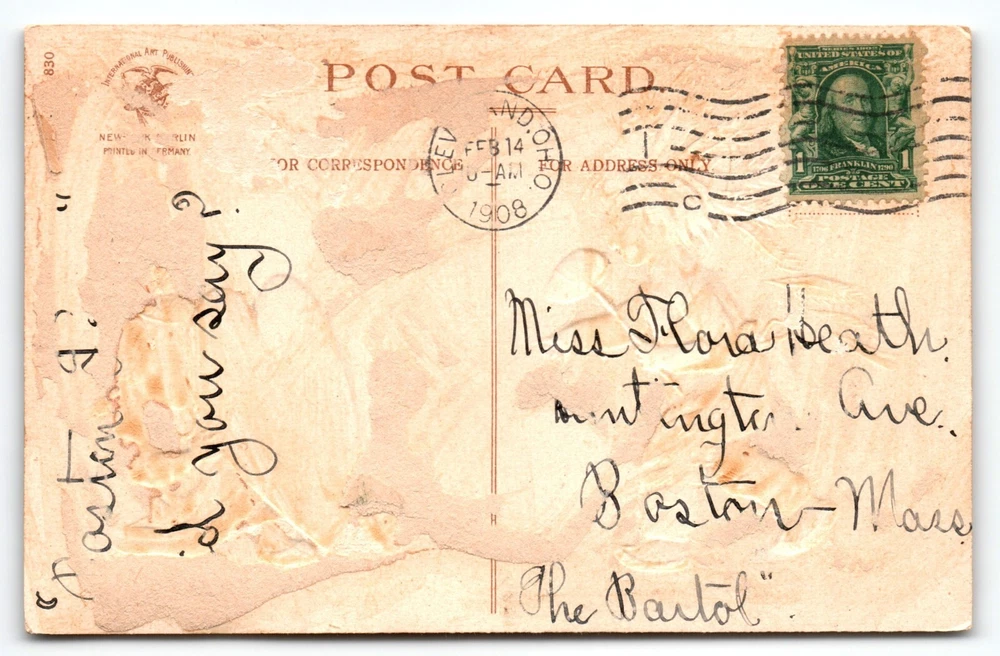 830
INTERNATIONAL ART PUBLISHIN
NEW K RLIN
PRINTED IN ERMANY.
POST CARD
OR CORRESPONDENCE
FOR ADDRESS ONLY
CLEV ND, OHIO
FEB 14
AM
1908
C
SERIES 1902
UNITED STATES OF
AMERICA
1 1
1706 FRANKLIN 1790
POSTAGE
ONE CENT
d you say?
Miss Flora Heath.
Ave.
Boston – Mass
The Bartol"
H